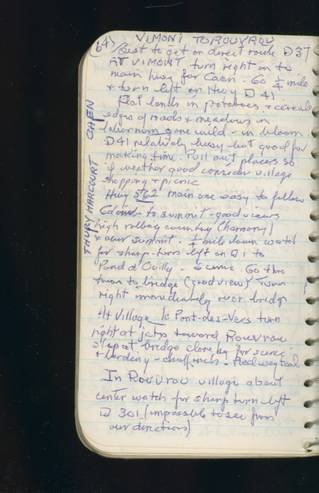 (64) VIMONT TO ROUVROU
Best to get on direct route D37
AT VIMONT turn right on to
main hwy for Caen. Go ¼ mile
& turn left on Hwy D 41
Flat lands in potatoes & cereal
edges of roads & meadows in
gone wild - in bloom
D41 relatively busy but good for
making time Pull out places so
if weather good consider village
shopping + picnic
Hwy 562 main one easy to follow
to summit - good views
high rolling country (Harmony)
over summit. ½ mile down watch
for sharp turn left on D1 to
Pond d'Ouilly. Scenic Go thru
town to bridge (good view) Turn
right immediately over bridge
At Village le Pont-des-Vers turn
right at jctn toward Rouvrou
stop at bridge close by for scenic
+ birding - chaffinch -
In Rouvrou village about
center watch for sharp turn left
D 301 (impossible to see from
our direction)
THURY HARCOURT CAEN